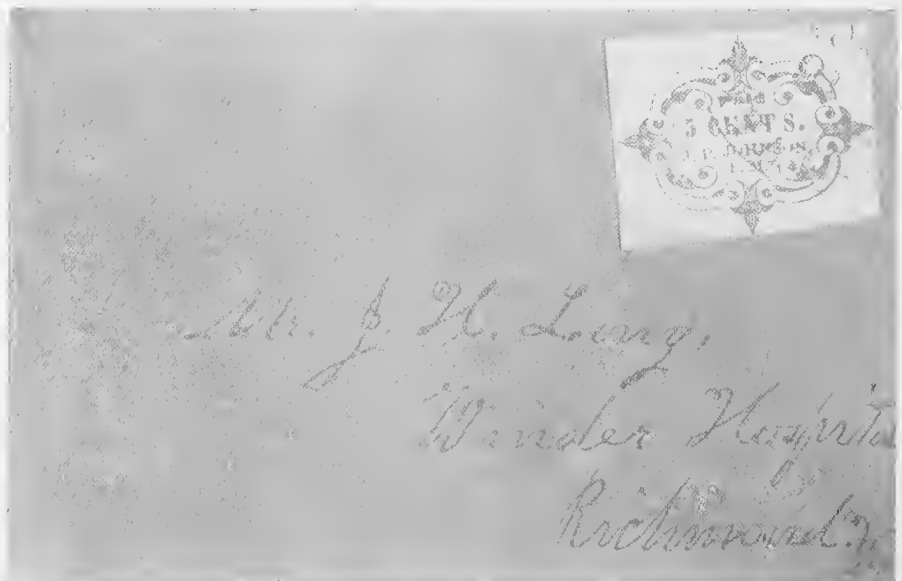 PAID
5 CENTS.
Mr. J. H. Lary,
Winder Hospita
Richmond.